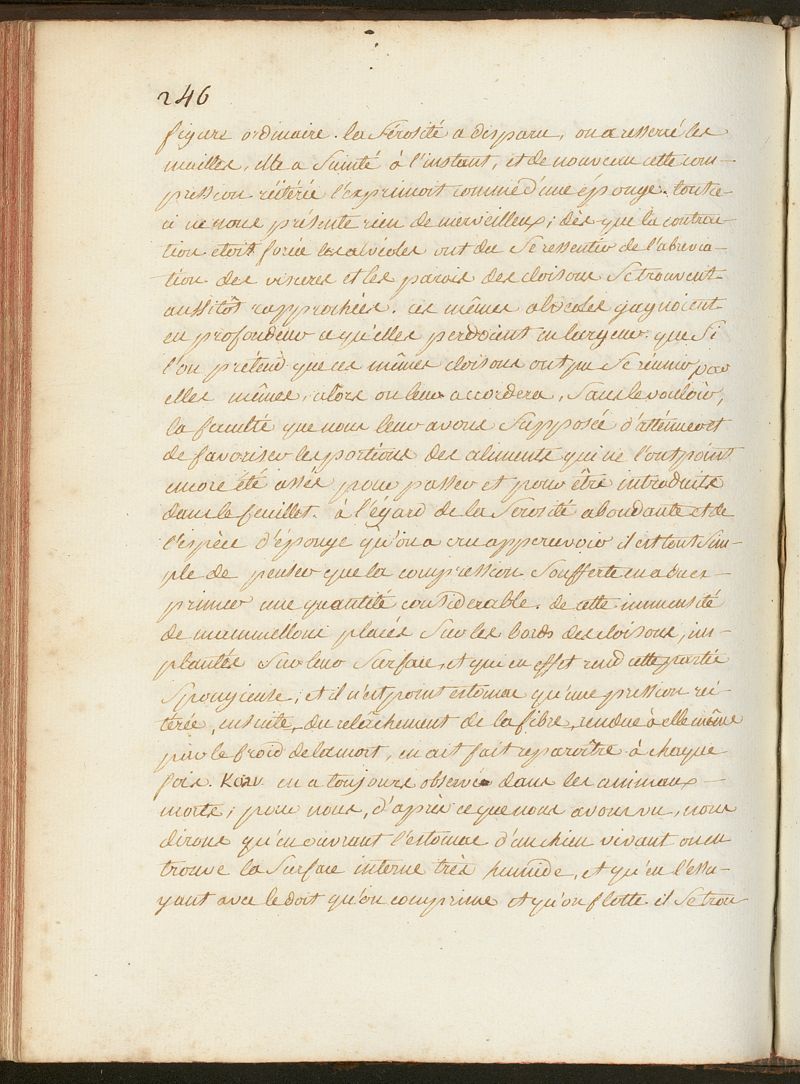 246
figure ordinaire. la Sérosité a disparu, on a resserré les
mailles, elle a Suinté à l'instant, et de nouveau cette com-
pression réitérée l'exprimoit comme d'une éponge. tout ce-
ci ne nous présente rien de merveilleux; dès que la contrac-
tion etoit forcée les alvéoles ont du Se ressentir de l'abrevia-
tion des visceres et les parois des cloisons Se trouvent
aussitôt rapprochées. ces mêmes alvéoles gagnoient
en profondeur a qu'elles perdoient en largeur. que Si
l'on prétend que ces mêmes cloisons ont pu Se réunir par
elles mêmes, alors on leur accordera, Sans le vouloir,
la faculté que nous leur avons Supposée d'atténuer et
de favoriser les portions des aliments qui ne l'ont point
encore été assés pour passer et pour être introduits
dans le feuillet. à l'égard de la Sérosité abondante et de
l'espèce d'éponge qu'on a cru appercevoir il est tout Sim-
ple de penser que la compression Soufferte en a du ex-
primer une quantité considerable. de cette immensité
de mammellons placés Sur les bords des cloisons, im-
plantés Sur leur Surface, et qui en effet rend cette partie
Spongieuse; et il n'est point estomac qu'une pression réi-
térée, ensuite du relâchement de la fibre, rendue à elle même
par le froid de la mort, en ait fait reparoître à chaque
fois. Kaav en a toujours observé dans les animaux
morts; pour nous, d'après ce que nous avons vu, nous
dirons qu'en ouvrant l'estomac d'un chien vivant on en
trouve la Surface interne très humide, et qu'en l'essu-
yant avec le doit qu'on comprime et qu'on flotte il Se trou